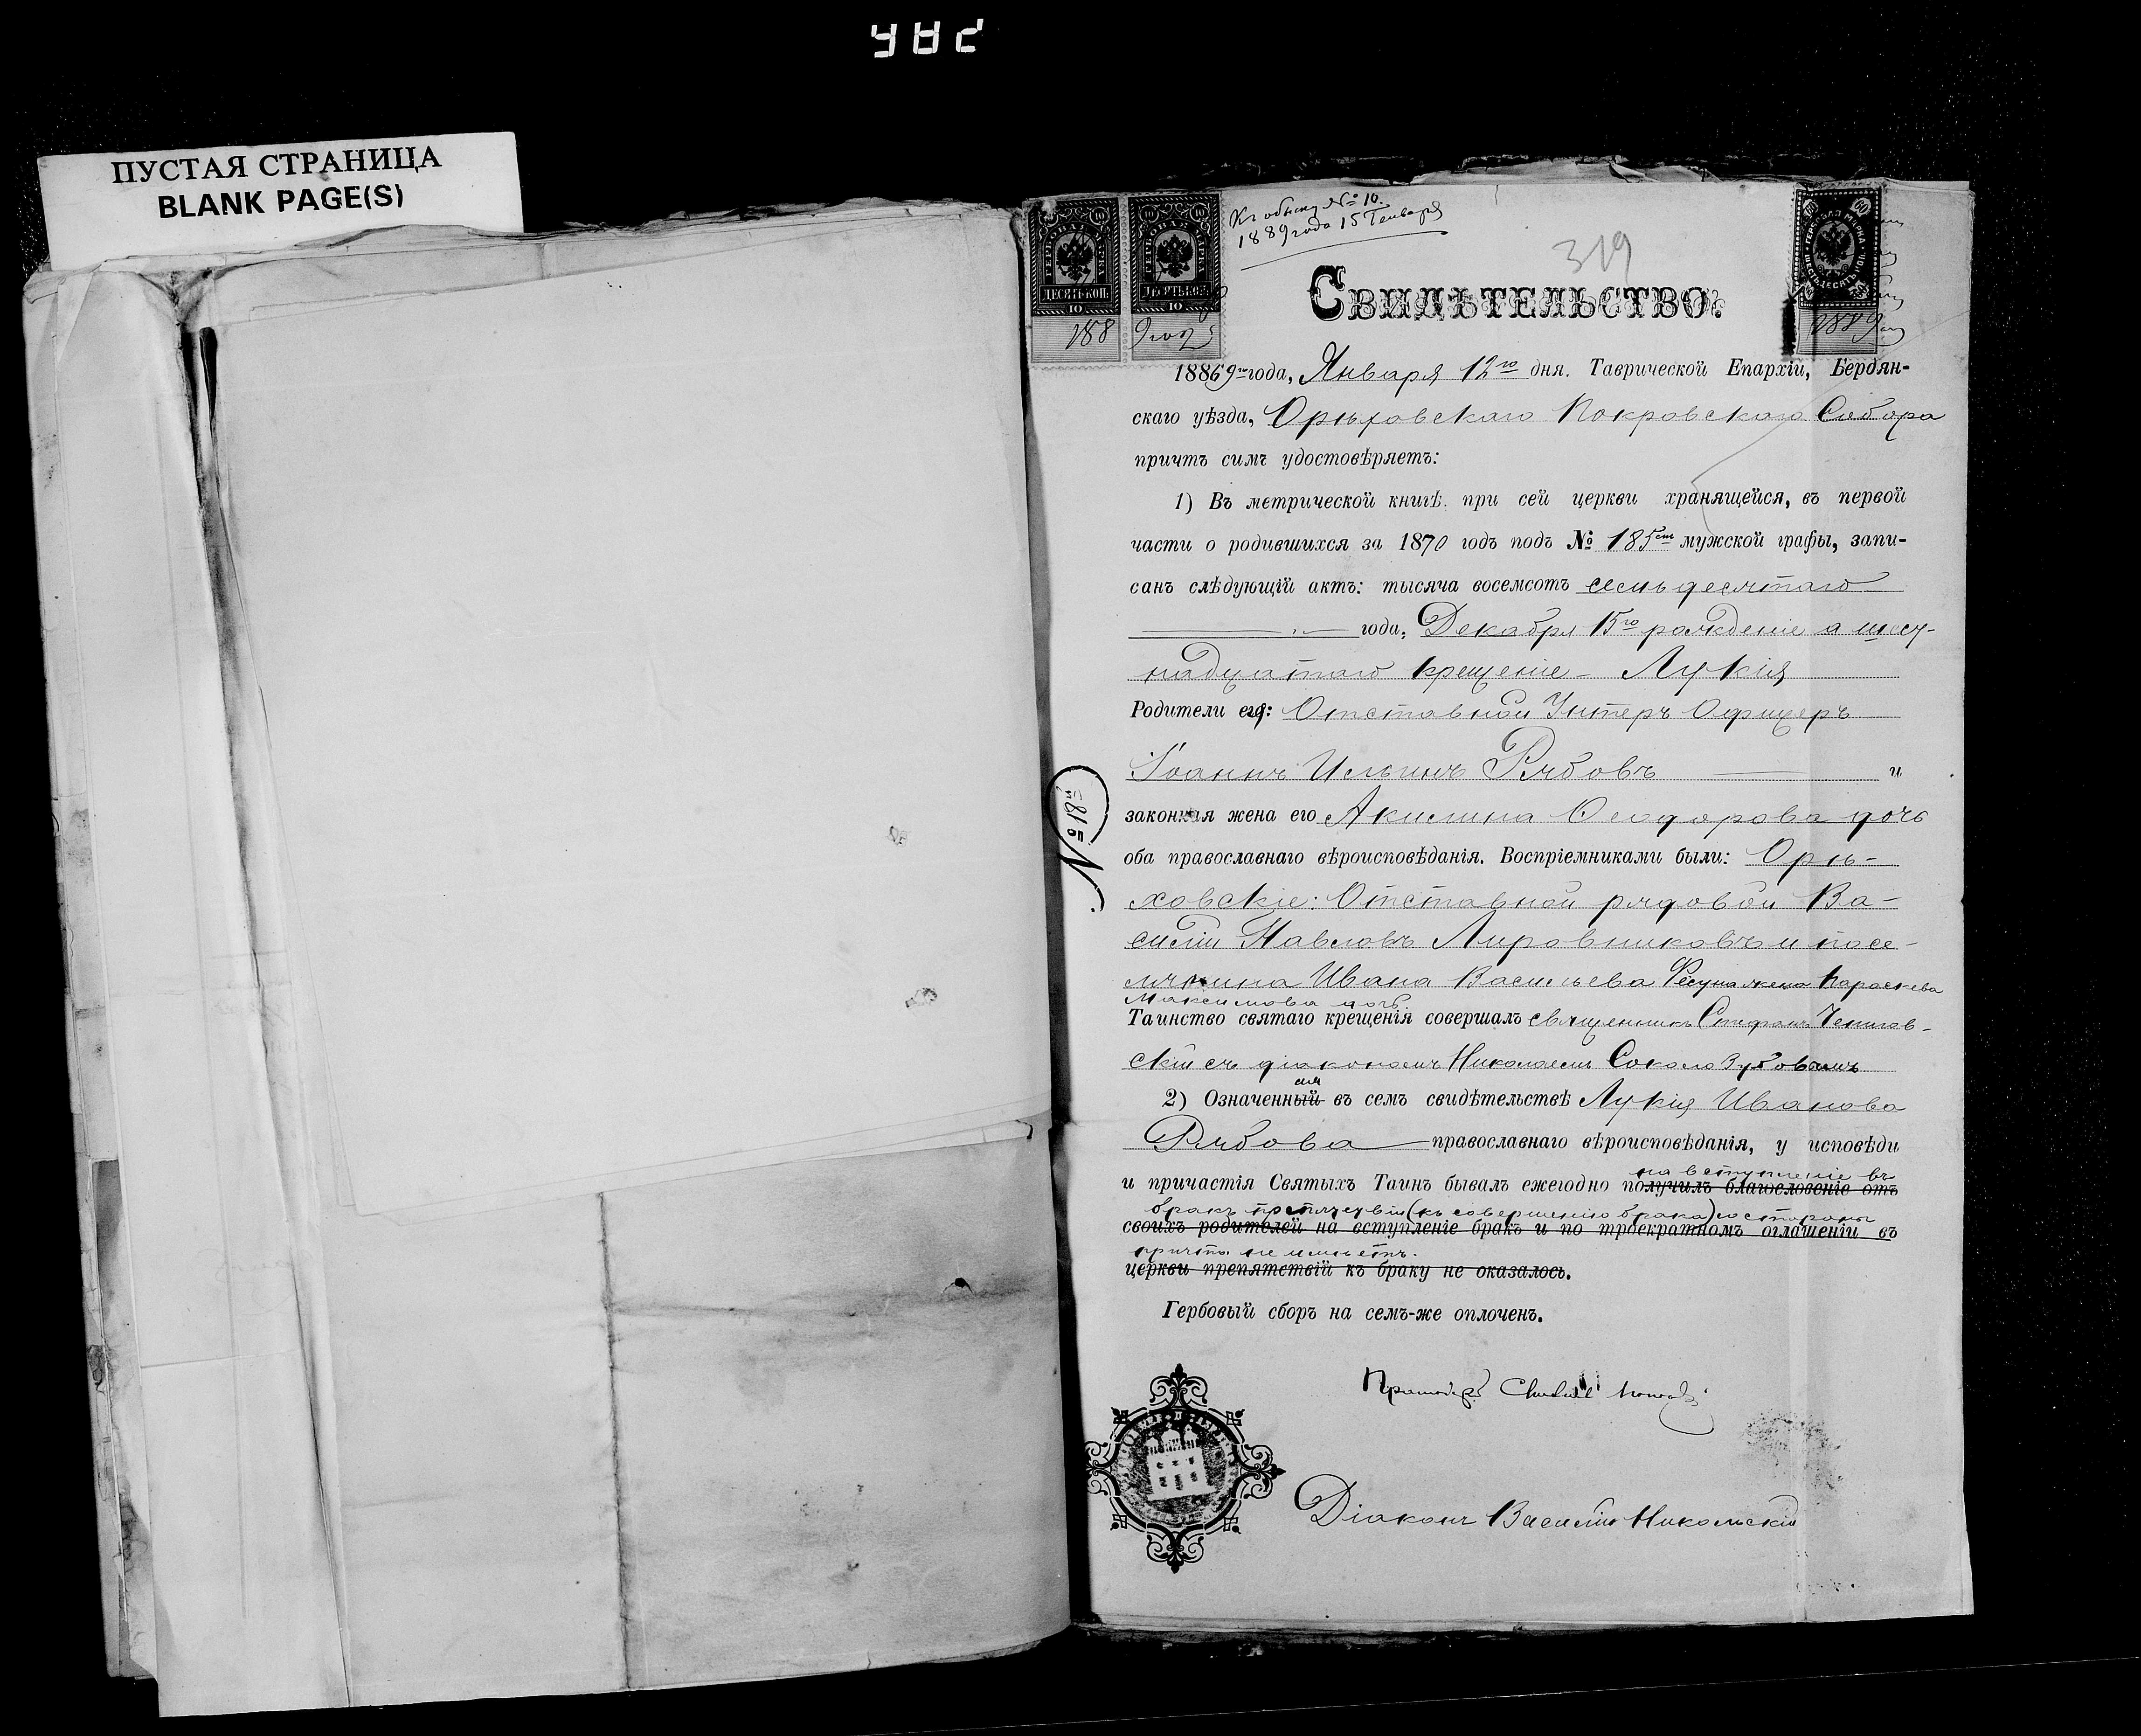 ПУСТАЯ СТРАНИЦА
BLANK PAGE(S)
Къ обыску № 10.
1889 года 15 Генваря
319
ДЕСЯТЬ КОП.
10
ДЕСЯТЬ КОП.
10
188 9 года
ГЕРБОВАЯ МАРКА
ШЕСТЬДЕСЯТЬ КОП.
60
1889
СВИДѢТЕЛЬСТВО.
18869го года, Января 12го дня. Таврической Епархіи, Бердян-
скаго уѣзда, Орѣховскаго Покровскаго Собора
причтъ симъ удостовѣряетъ:
1) Въ метрической книгѣ при сей церкви хранящейся, въ первой
части о родившихся за 1870 годъ подъ № 185мъ мужской графы, запи-
санъ слѣдующій актъ: тысяча восемсотъ семьдесятаго
года, Декабря 15го рожденіе а шест-
надцатаго крещеніе - Лукія
Родители ея: Отставной Унтеръ Офицеръ
Іоаннъ Ильинъ Рябовъ и
законная жена его Акилина Ѳеодорова дочь
оба православнаго вѣроисповѣданія. Воспріемниками были: Орѣ-
ховскіе: Отставной рядовой Ва-
силій Павловъ Лировниковъ и посе-
лянина Ивана Васильева Фесуна жена Параскева
Максимова дочь
Таинство святаго крещенія совершалъ священникъ Стефанъ
скій съ діакономъ Николаемъ Соколо Зубовымъ
№ 18й
ая
2) Означенный въ семъ свидѣтельствѣ Лукія Иванова
Рябова православнаго вѣроисповѣданія, у исповѣди
на вступленіе въ
и причастія Святыхъ Таинъ бывалъ ежегодно получилъ благословеніе отъ
бракъ препятствій (къ совершенію брака) со стороны
своихъ родителей на вступленіе бракъ и по троекратномъ оглашеніи въ
причта не имѣетъ.
церкви препятствій къ браку не оказалось.
Гербовый сборъ на семъ-же оплоченъ.
Діаконъ Василій Никольскій